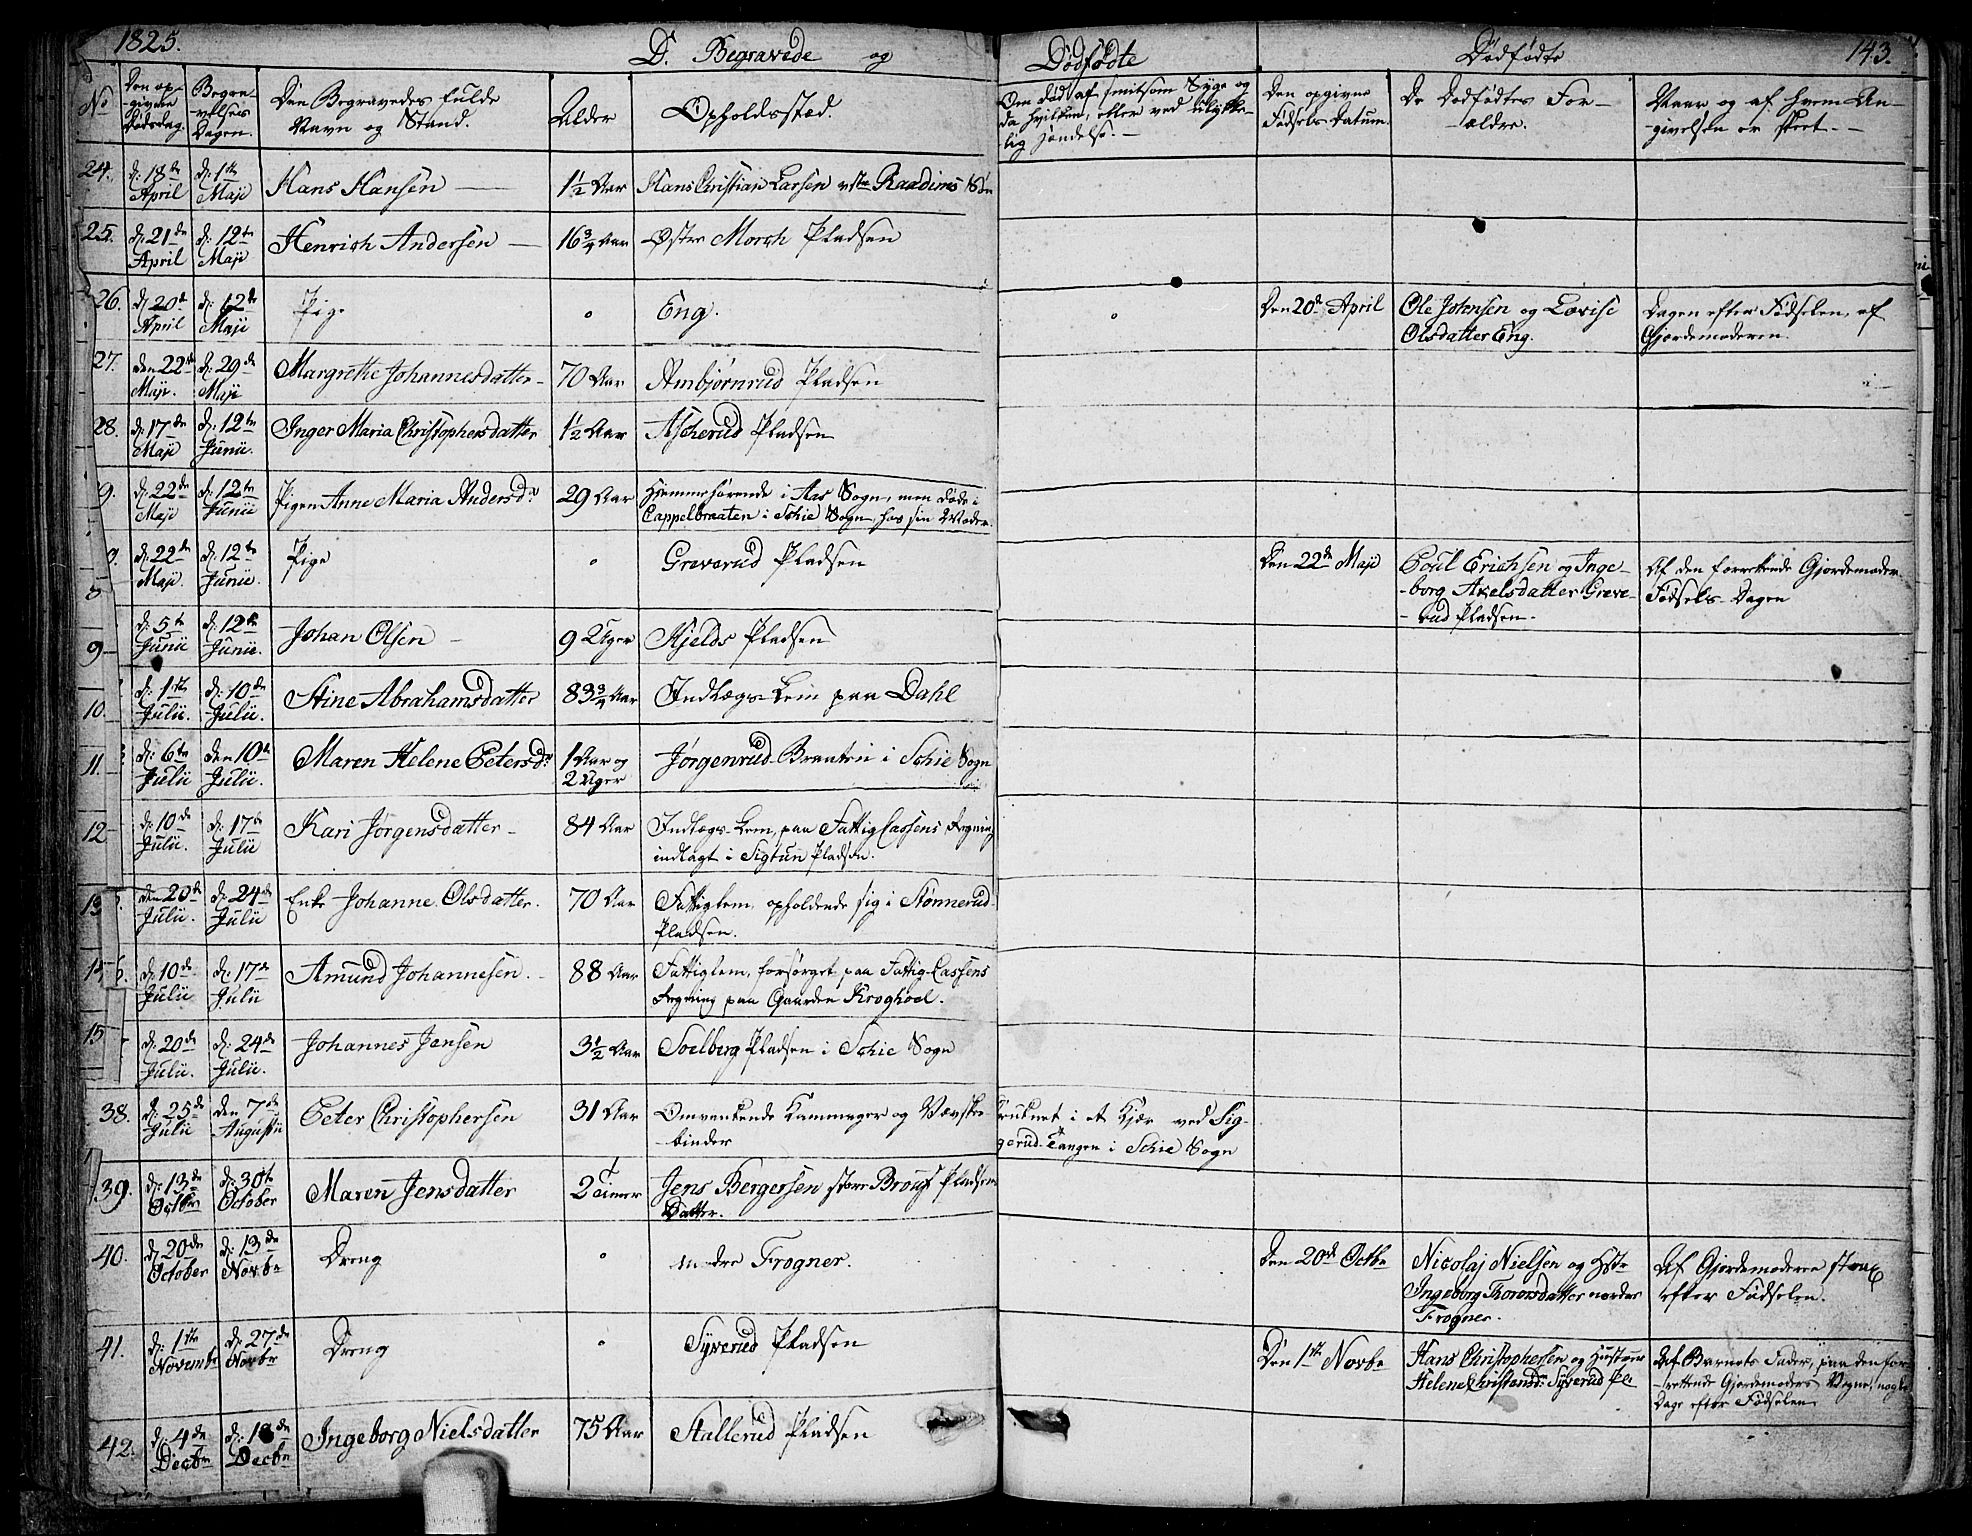 1825.
D. Begravede og Dødfødte
Dødfødte
143.
No
Den op-
-givne
Dødsdag.
Begra-
-velses
Dagen.
Den Begravedes fulde
Navn og Stand.
Alder
Opholdssted.
Om død af smitsom Syge og
da hvilken, eller ved ulykke-
-lig Hændelse. -
Den opgivne
Fødsels Datum.
De Dødfødtes For-
-ældre.
Naar og af hvem An-
-givelsen er skeet. -
24. d: 18de April d: 1ste Maji Hans Hansen 1½ Aar Hans Christian Larsen vstre Raadims Søn
25. d: 21de April d: 12te Maji Henrich Andersen 16¾ Aar Østre Morch Pladsen
26. d: 20de April d: 12te Maji Pige Eng. Den 20de April Ole Johnsen og Lovise
Olsdatter Eng.
Dagen efter Fødselen, af
Gjordemoderen.
27. den 22de Maji. d: 29de Maji Margrethe Johannesdatter - 70 Aar Ambjørnrud Pladsen
28. d: 17de Maji d: 12te Junii Inger Maria Christophersdatter 1½ Aar Ascherud Pladsen
9. d: 22de Maji d: 12te Junii Pigen Anne Maria Andersdr 29 Aar Hjemmehørende i Aas Sogn, men døde i
Cappelbraaten i Schie Sogn hos sin Moder.
d: 22de Maji. d: 12te Junii. Pige Greverud Pladsen Den 22de Maji Poul Erichsen og Inge-
-borg Axelsdatter Greve-
-rud Pladsen.
Af den forrettende Gjordemoder
Fødsels-Dagen
8
9 d: 5te Junii d: 12te Junii. Johan Olsen 9 Uger Hjelds Pladsen
10. d: 1ste Julii. d: 10de Julii. Stine Abrahamsdatter 83¾ Aar Indlægs-Lem paa Dahl
11. d: 6te Julii den 10de Julii. Maren Helene Petersdr 1 Aar og
2 Uger
Jørgenrud-Braaten i Schie Sogn
12 d: 10de Julii. d: 17de Julii Kari Jørgensdatter - 84 Aar Indlægs-Lem, paa Fattig Cassens Regning
indlagt i Sigtun Pladsen.
13 den 20de Julii. d: 24de Julii Enke Johanne Olsdatter. 70 Aar Fattiglem, opholdende sig i Stønnerud-
Pladsen.
15 6. d: 10de Julii d: 17de Julii Amund Johannesen. 88 Aar Fattiglem, forsørget paa Fattig-Cassens
Regning paa Gaarden Kroghoel.
15 d: 20de Julii. d: 24de Julii. Johannes Jensen 3½ Aar Soelberg Pladsen i Schie Sogn
38. d: 25de Julii den 7de Augustii Peter Christophersen 31 Aar Omvankende Kammager og Vævske-
-binder
Druknet i et Kjær ved Sig-
gerud-Tangen i Schie Sogn
39. d: 13de Octbr d: 30te October Maren Jensdatter 2 Timer Jens Bergersen store Brougs Pladsens
Datter.
40. d: 20de October d: 13de Novbr Dreng nordre Frogner. Den 20de Octbr Nicolaj Nielsen og Hstr
Ingeborg Thorersdatter nordre
Frogner.
Af Gjordemoderen strax
efter Fødselen.
41. d: 1ste Novembr d: 27de Novbr Dreng Syverud Pladsen Den 1ste Novbr Hans Christophersen og Hustrue
Helene Christensdr: Syverud Pl
Af Barnets Fader, paa den for-
-rettende Gjordemoders Vegne, nogle
Dage efter Fødselen.
42. d: 4de Decbr d: 18de Decbr Ingeborg Nielsdatter 75 Aar Stallerud Pladsen